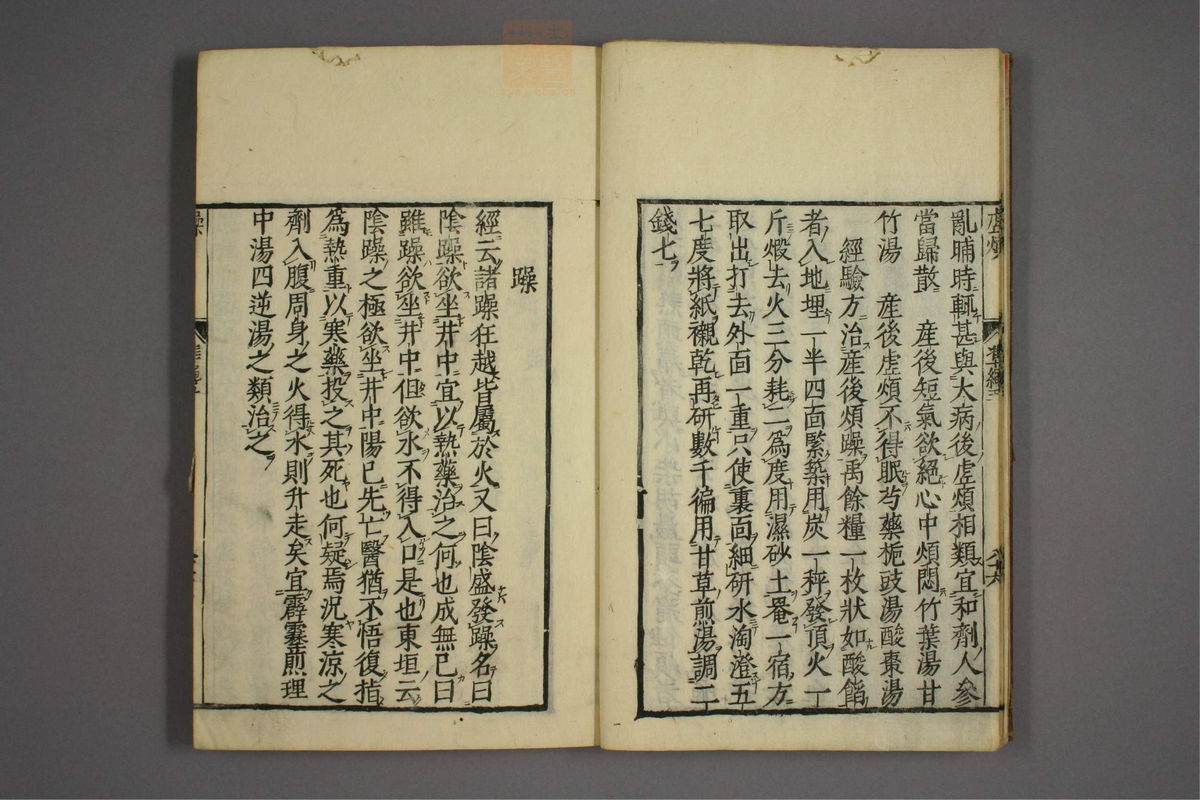 虛煩
亂晡時輒甚與大病後虛煩相類宜和劑人參
當歸散　産後短氣欲絕心中煩悶竹葉湯甘
竹湯　産後虛煩不得眠芍藥梔豉湯酸棗湯
經驗方治産後煩躁禹餘糧一枚狀如酸餡
者入地埋一半四面緊築用炭一秤發頂火一
斤煅去火三分耗二爲度用濕砂土罨一宿方
取出打去外面一重只使裏面細研水淘澄五
七度將紙襯乾再研數千徧用甘草煎湯調二
錢七
躁
經云諸躁狂越皆屬於火又曰陰盛發躁名曰
陰躁欲坐井中宜以熱藥治之何也成無已曰
雖躁欲坐井中但欲水不得入口是也東垣云
陰躁之極欲坐井中陽已先亡醫猶不悟復指
爲熱重以寒藥投之其死也何疑焉況寒涼之
劑入腹周身之火得水則升走矣宜霹靂煎理
中湯四逆湯之類治之